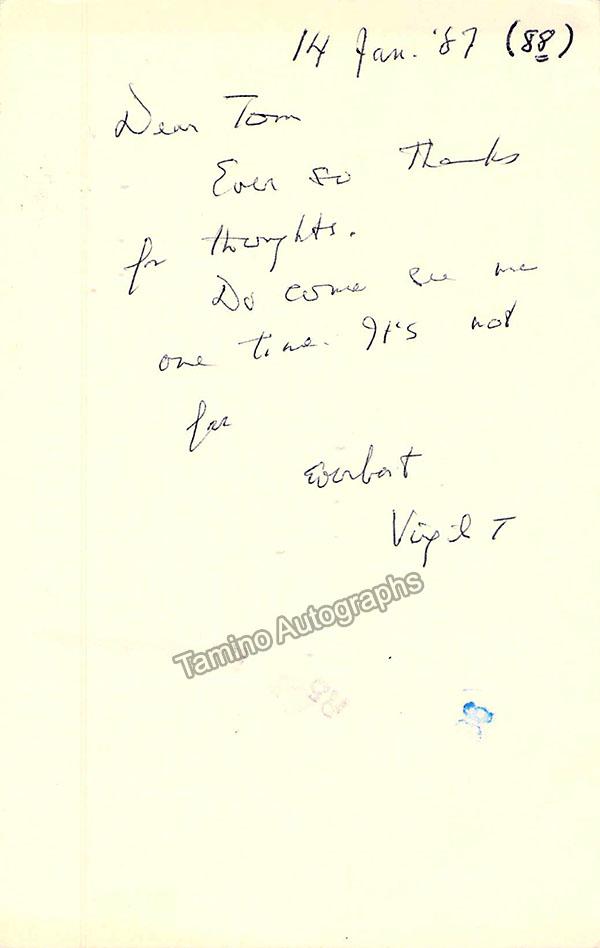 14 Jan. '87 (88)
Dear Tom
Ever so thanks
for thoughts.
Do come see me
one time. It's not
far
Everbest
Virgil T
Tamino Autographs